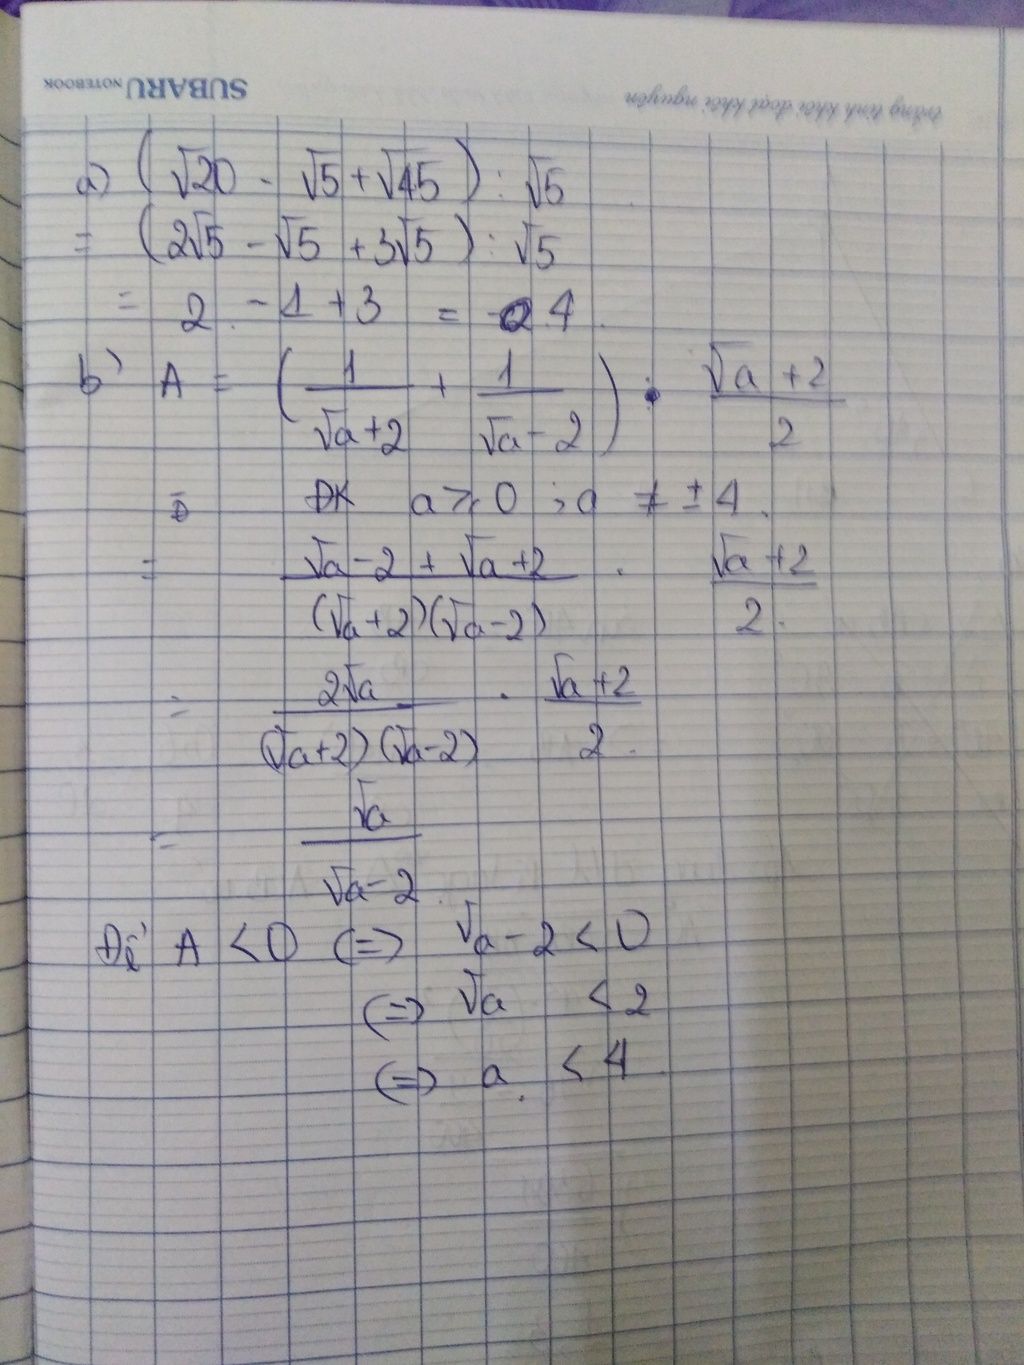 SUBARU NOTEBOOK
trông tinh khôi đoạt khôi nguyên
a) (√20 - √5 + √45) : √5
= (2√5 - √5 + 3√5) : √5
= 2 - 1 + 3 = 4.
b) A = (1/(√a+2) + 1/(√a-2)) . (√a+2)/2
ĐK a ≥ 0 ; a ≠ ± 4.
= (√a-2 + √a+2)/((√a+2)(√a-2)) . (√a+2)/2.
= 2√a/((√a+2)(√a-2)) . (√a+2)/2.
= √a/(√a-2).
Để A < 0 (=) √a - 2 < 0
(=) √a < 2
(=) a < 4